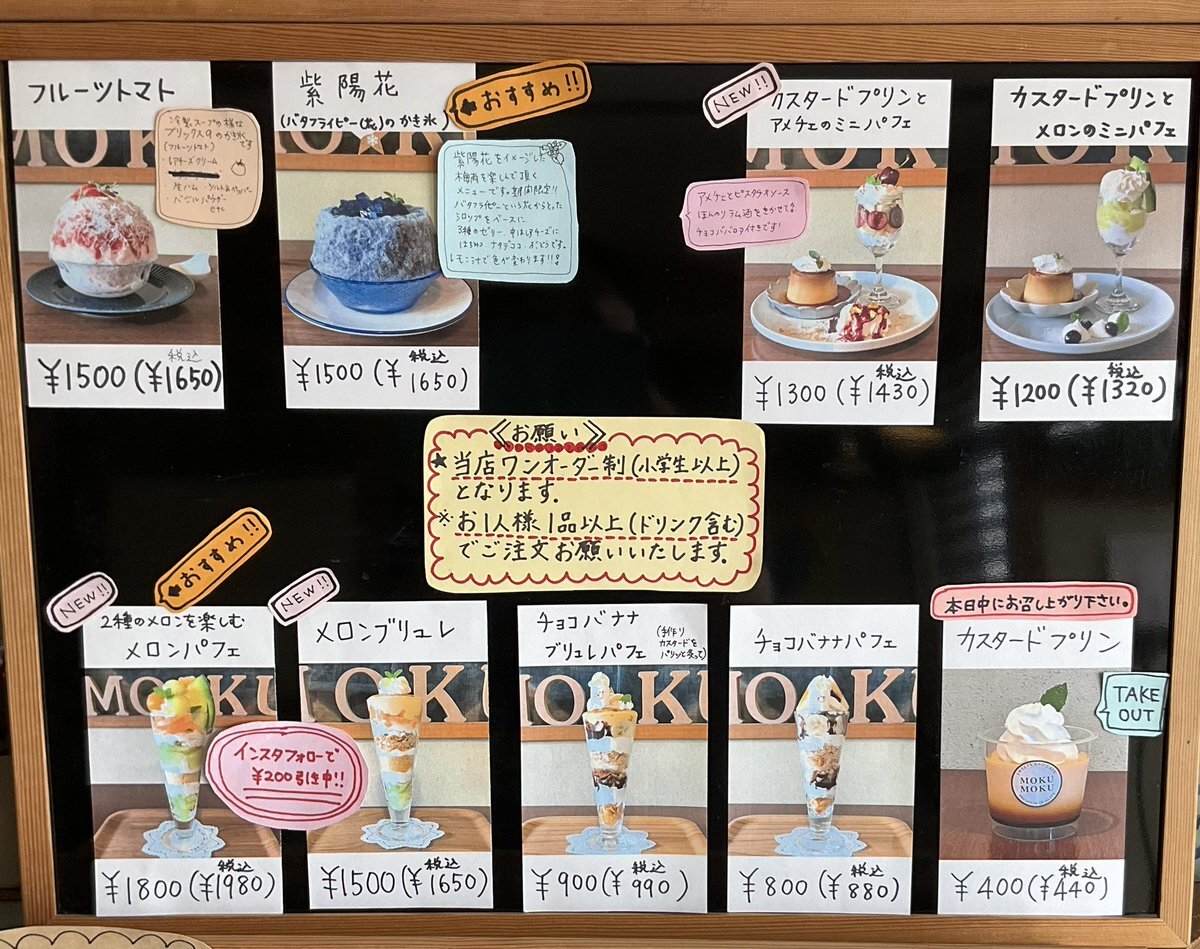 フルーツトマト
冷製スープの様な
ブリックス9のかき氷
です
(フルーツトマト)
・レアチーズクリーム
・生ハム・ソルト&ペッパー
・バジルパウダー
etc
¥1500(¥1650)
税込
紫陽花
(バタフライピー(花)のかき氷
おすすめ!!
紫陽花をイメージした
梅雨を楽しんで頂く
メニューです。期間限定!!
バタフライピーという花からとった
シロップをベースに
3種のゼリー、中はレアチーズに
はちみつ ナタデココ ぶどうです。
レモン汁で色が変わります!!
¥1500(¥1650)
税込
NEW!!
カスタードプリンと
アメチェのミニパフェ
アメチェとピスタチオソース
ほんのりラム酒をきかせて
チョコババロア付きです!
¥1300(¥1430)
税込
カスタードプリンと
メロンのミニパフェ
¥1200(¥1320)
税込
《お願い》
★当店ワンオーダー制(小学生以上)
となります.
※お1人様1品以上(ドリンク含む)
でご注文お願いいたします.
NEW!!
おすすめ!!
2種のメロンを楽しむ
メロンパフェ
MOKU
¥1800(¥1980)
税込
インスタフォローで
¥200引き中!!
NEW!!
メロンブリュレ
¥1500(¥1650)
税込
チョコバナナ
ブリュレパフェ
(手作り
カスタードを
パリッと炙って)
¥900(¥990)
税込
チョコバナナパフェ
¥800(¥880)
税込
本日中にお召し上がり下さい。
カスタードプリン
TAKE
OUT
MOKU
MOKU
¥400(¥440)
税込